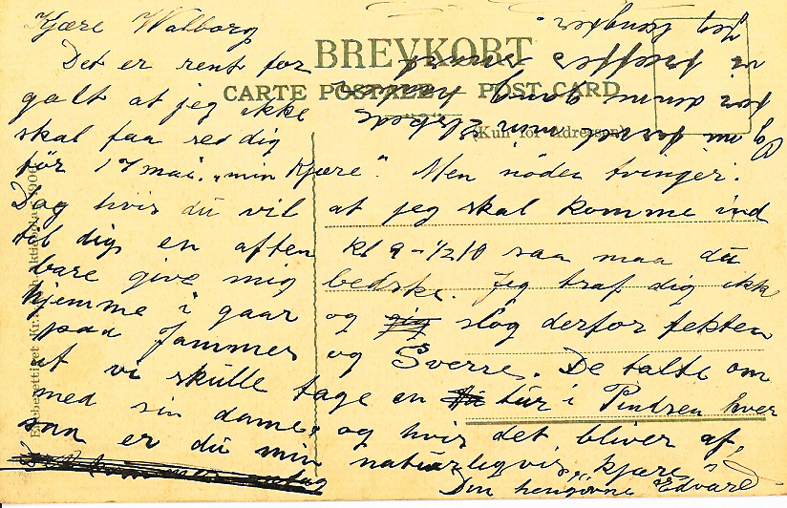 BREVKORT
CARTE POSTALE — POST CARD
(Kun for adressen)
Eneberettiget
Kjære Walborg
Det er rent for
galt at jeg ikke
skal faa se dig
før 17 mai. „min Kjære“. Men nøden tvinger.
Dog hvis du vil at jeg skal komme ind
til dig en aften kl 9-1/2 10 saa maa du
bare give mig Jeg traf dig ikke
hjemme i gaar og gig slog derfor
paa og Sverre. De talte om
at vi skulle tage en tur i Pindsen hver
med sin dame, og hvis det bliver af,
saa er du min naturligvis, kjære
Din hengivne Edvard
vi træffes snart